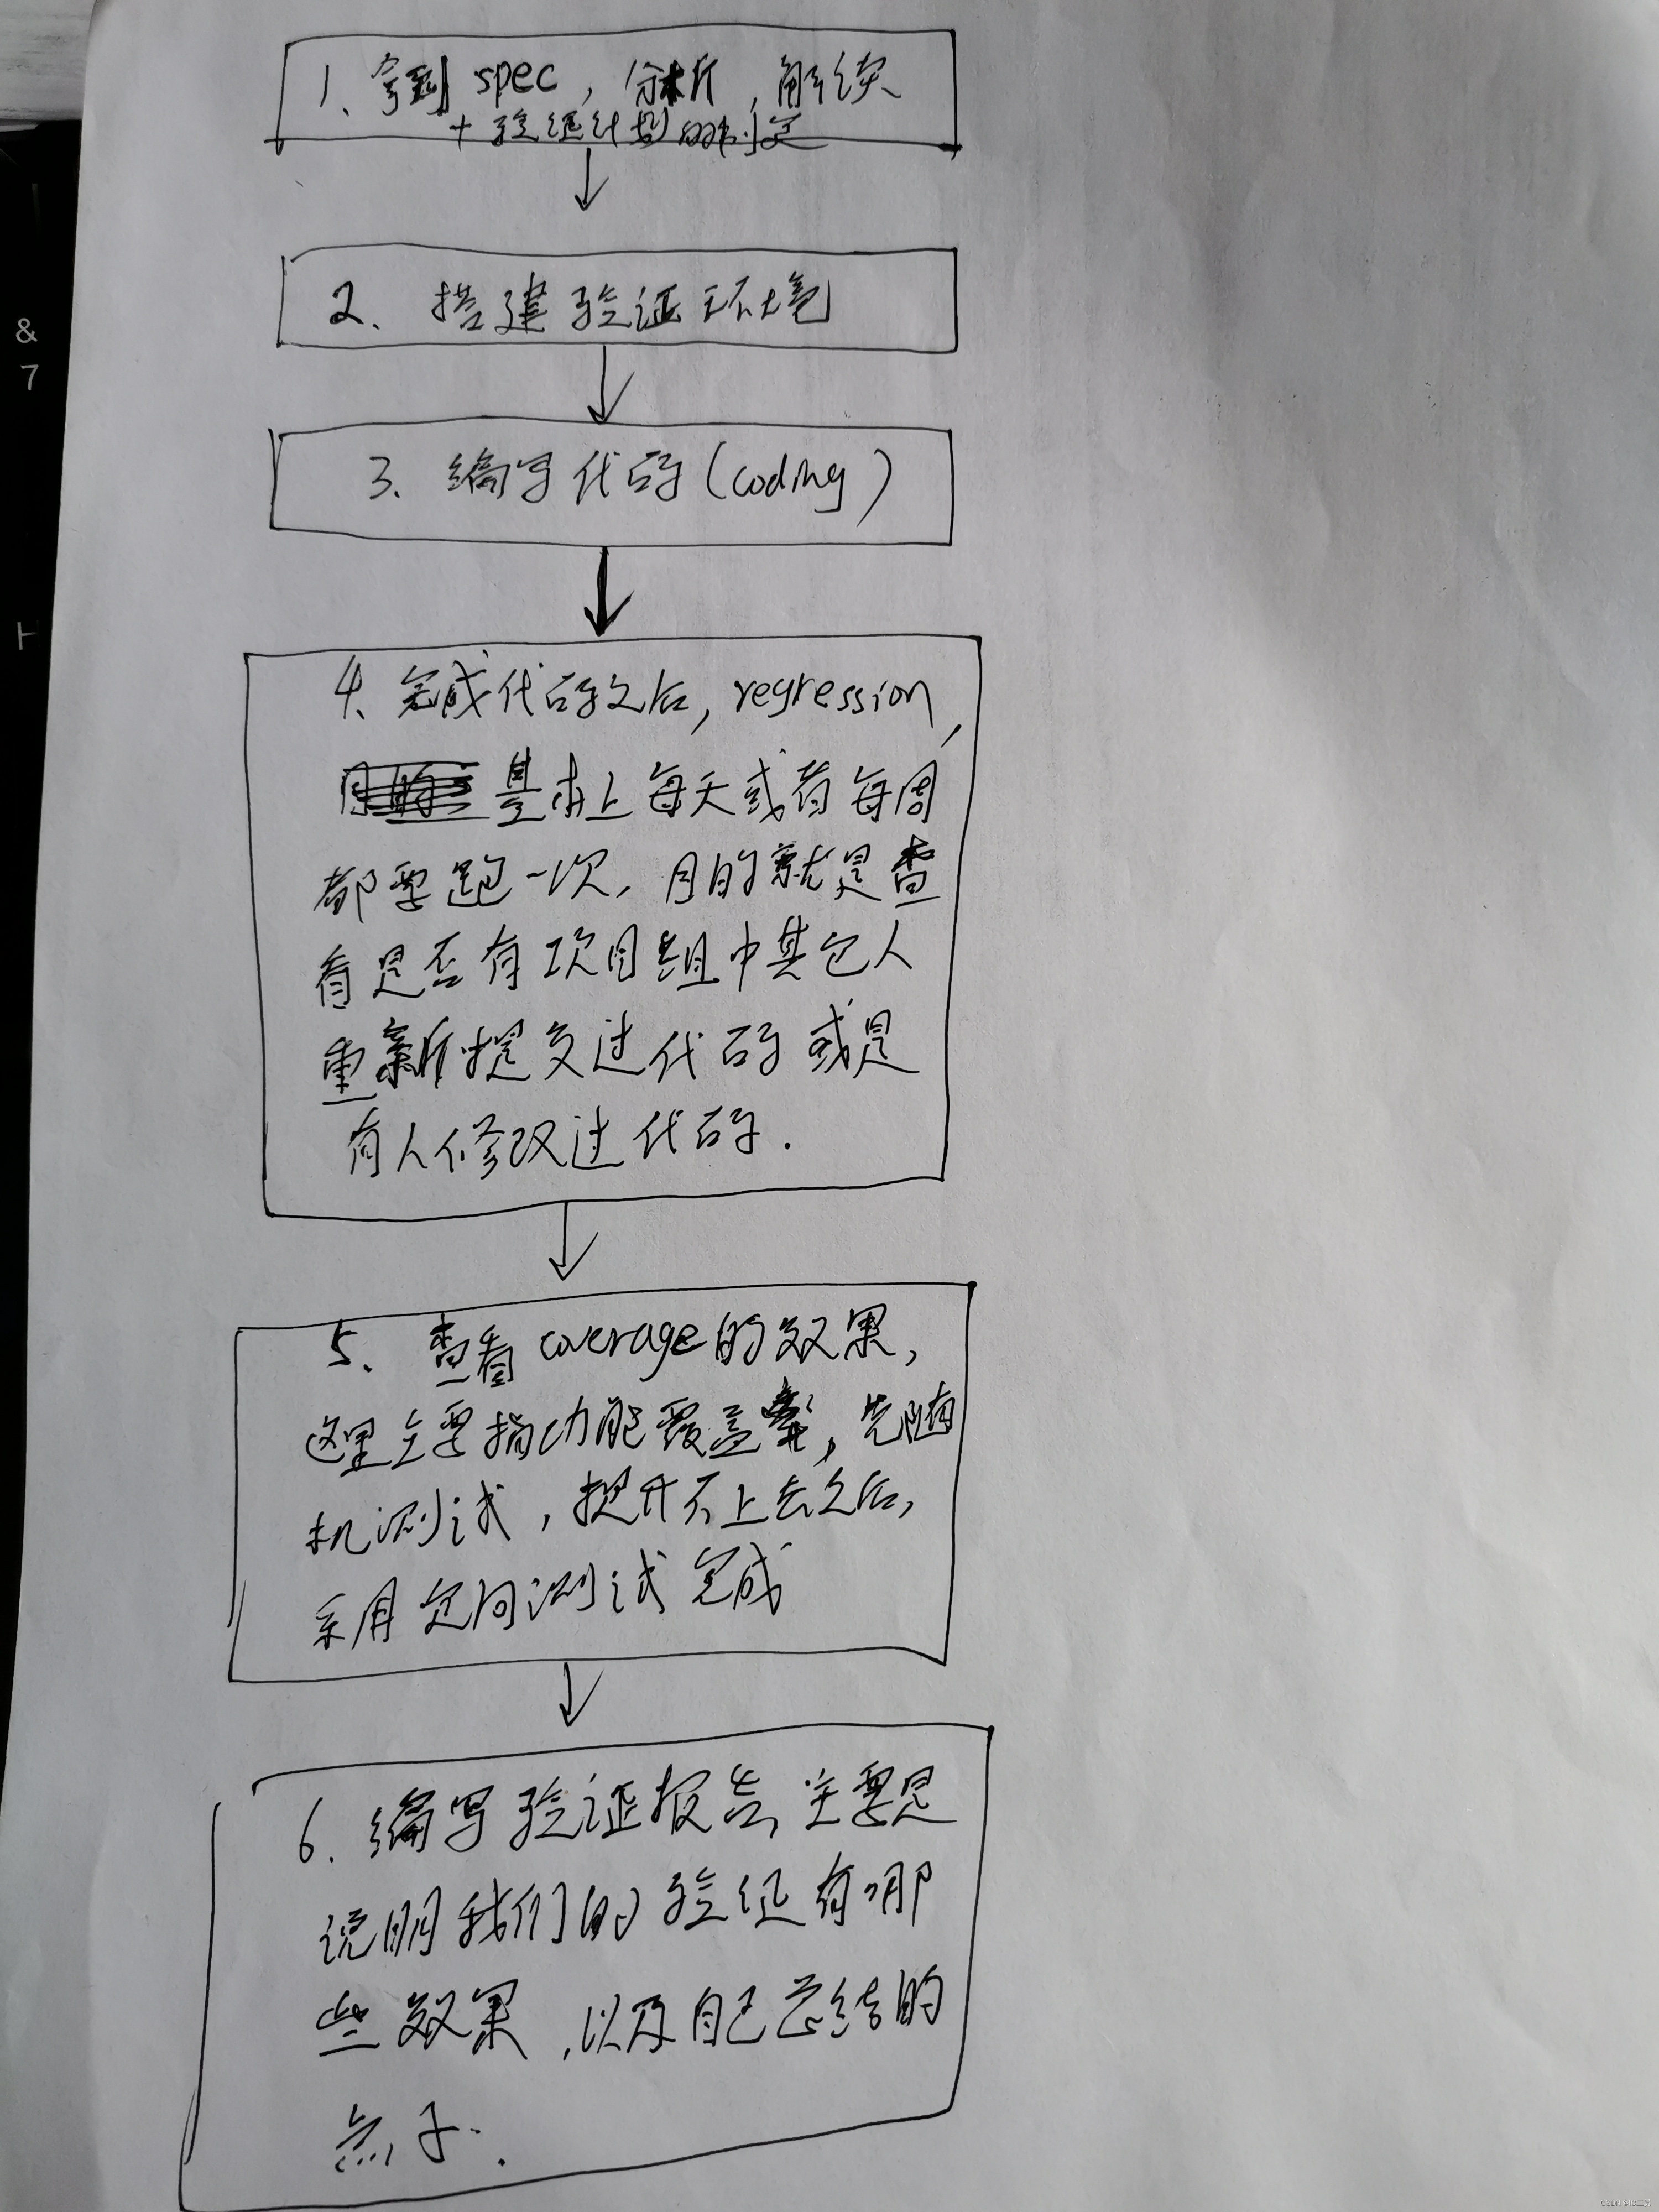 1、拿到spec，分析，解读
+验证计划的制定
2、搭建验证环境
3、编写代码(coding)
4、完成代码之后，regression，
基本上每天或者每周
都要跑一次，目的就是查
看是否有项目组中其它人
重新提交过代码或是
有人修改过代码.
5、查看coverage的效果，
这里主要指功能覆盖率，先随
机测试，提升不上去之后，
采用定向测试完成
6.编写验证报告，主要是
说明我们的验证有哪
些效果，以及自己总结的
点子.
&
7
H